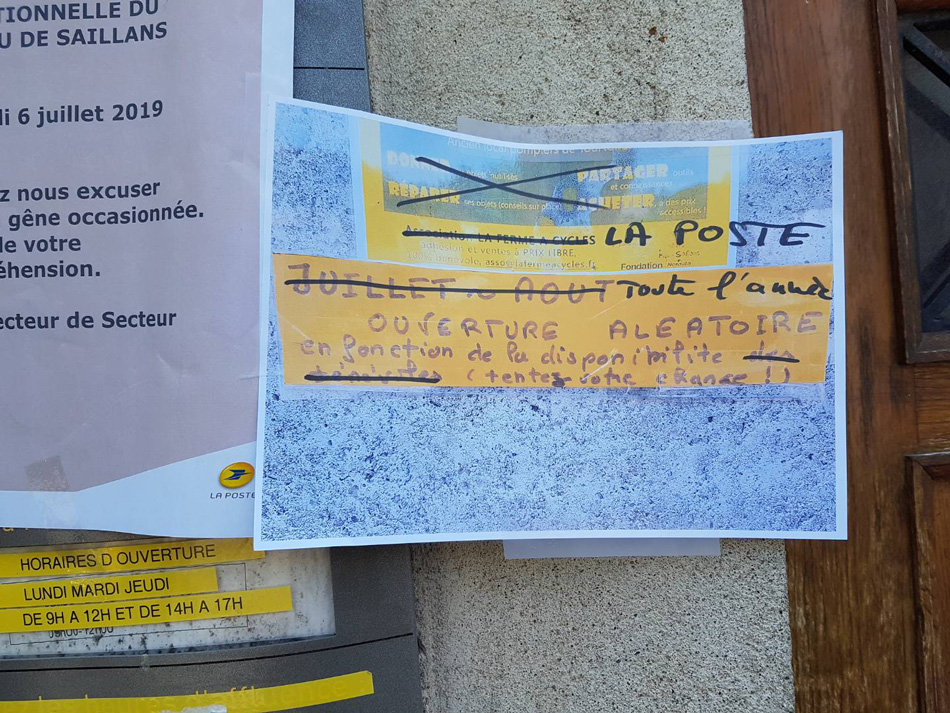 TIONNELLE DU
U DE SAILLANS
di 6 juillet 2019
ez nous excuser
gêne occasionnée.
de votre
éhension.
ecteur de Secteur
LA POSTE
HORAIRES D OUVERTURE
LUNDI MARDI JEUDI
DE 9H A 12H ET DE 14H A 17H
PARTAGER outils
RÉPARER ses objets (conseils sur place) ACHETER, à des prix
accessibles !
Association LA FERME A CYCLES LA POSTE
adhésion et ventes à PRIX LIBRE,
bénévole, associafermeacycles.fr
Fondation
JUILLET & AOUT Toute l'année
OUVERTURE ALEATOIRE
en fonction de la disponibilite des
bénévoles (tentez votre chance !)